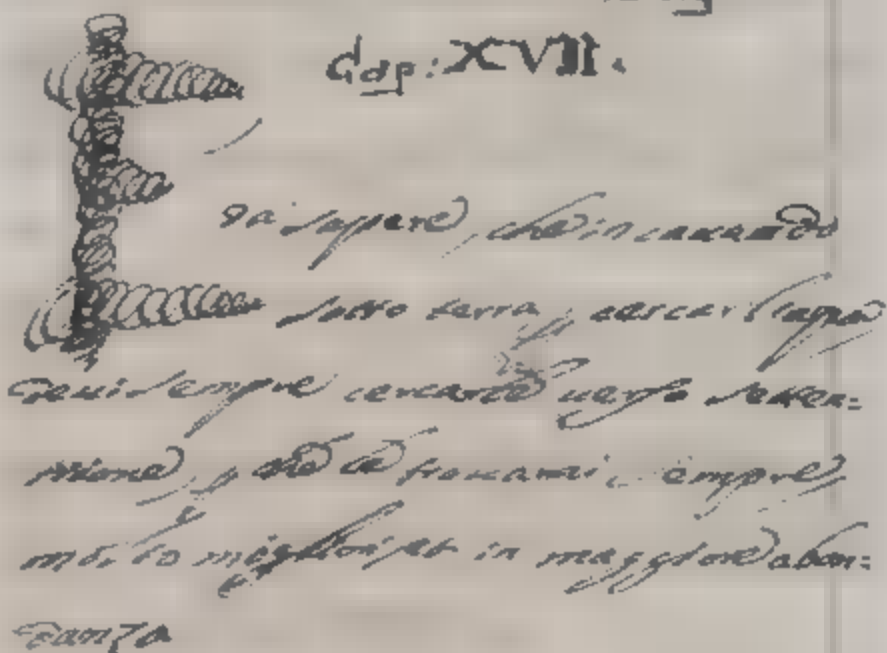 Cap: XVII.
E da sapere, che in cauando
sotto terra, p cercar l'aqua
deui sempre uerso setten:
trione, p che la trouarai sempre
molto et in maggiore abon:
danza